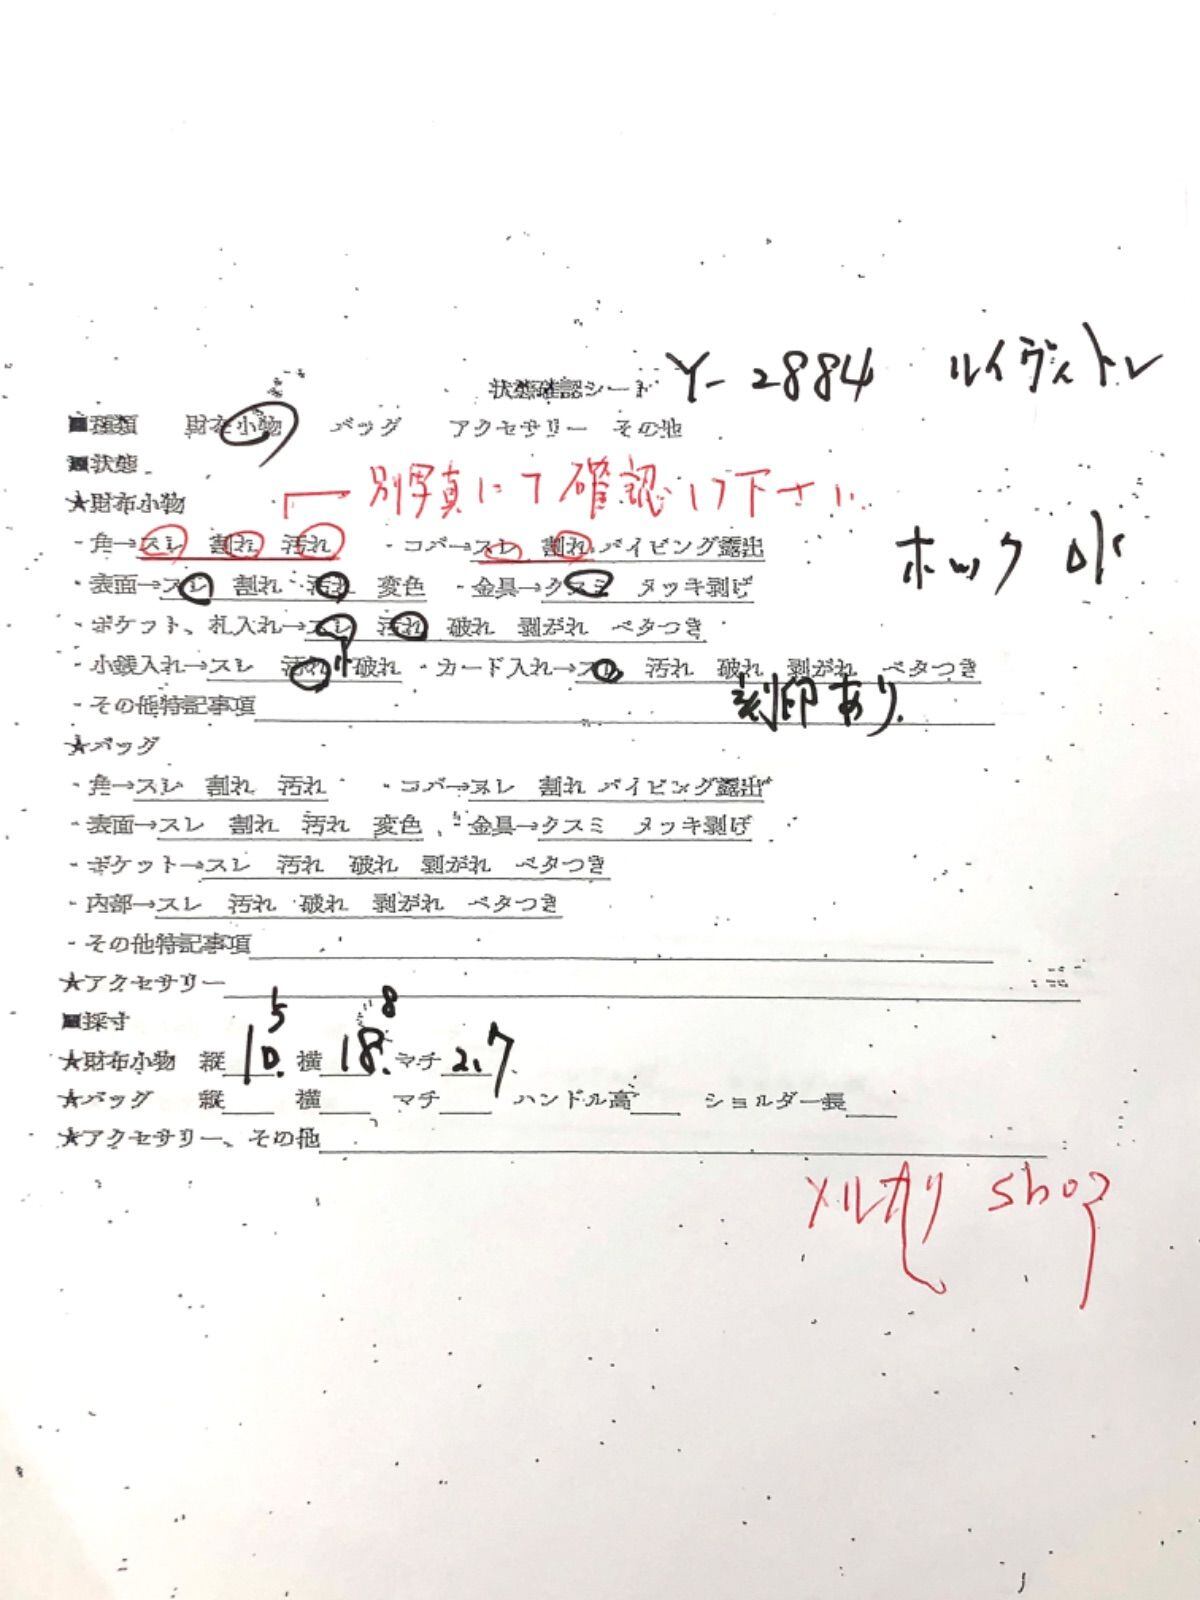 状態確認シート Y-2884 ルイヴィトン
■種類 財布小物 バッグ アクセサリー その他
■状態
別写真にて確認して下さい
★財布小物
・角→スレ 割れ 汚れ ・コバ→スレ 割れ パイピング露出
ホック
・表面→スレ 割れ 汚れ 変色 ・金具→クスミ メッキ剥げ
・ポケット、札入れ→スレ 汚れ 破れ 剥がれ ベタつき
・小銭入れ→スレ 汚れ 破れ ・カード入れ→スレ 汚れ 破れ 剥がれ ベタつき
・その他特記事項 刻印あり
★バッグ
・角→スレ 割れ 汚れ ・コバ→スレ 割れ パイピング露出
・表面→スレ 割れ 汚れ 変色 ・金具→クスミ メッキ剥げ
・ポケット→スレ 汚れ 破れ 剥がれ ベタつき
・内部→スレ 汚れ 破れ 剥がれ ベタつき
・その他特記事項
★アクセサリー
■採寸
★財布小物 縦10.5 横18.8 マチ2.7
★バッグ 縦 横 マチ ハンドル高 ショルダー長
★アクセサリー、その他
メルカリ shop